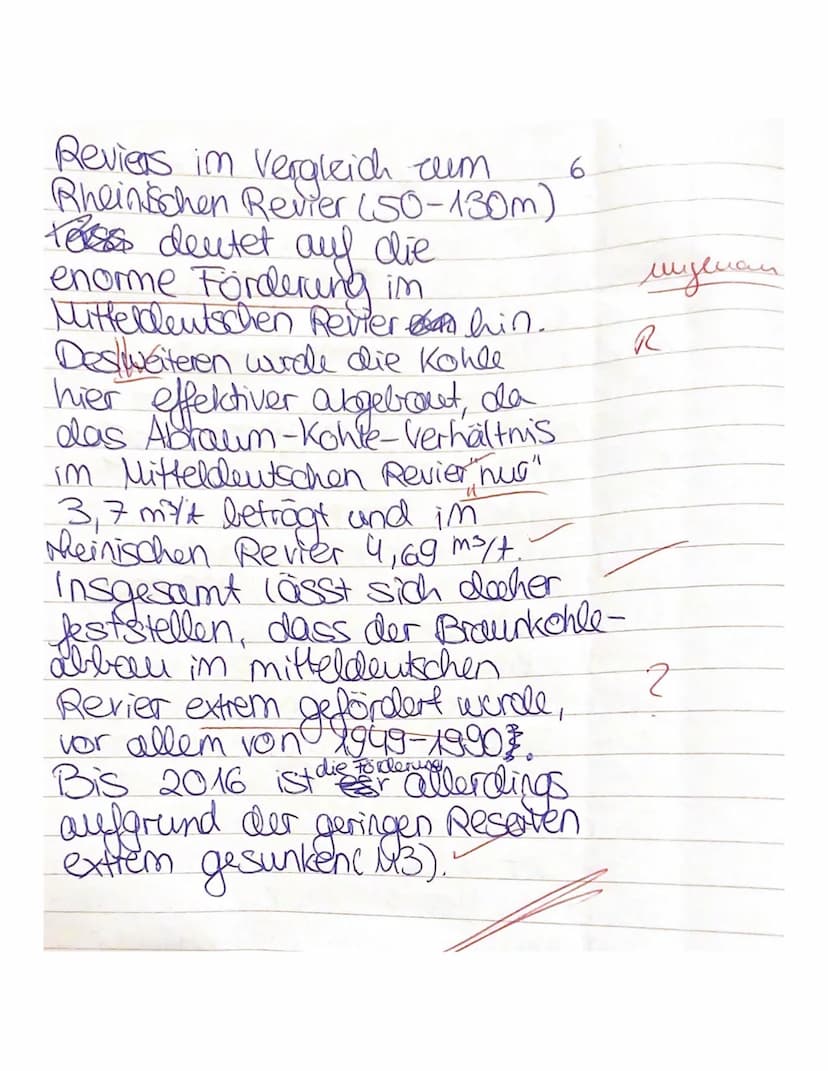 Reviers im Vergleich zum 6
Rheinischen Revier (50-130m)
deutet auf die
enorme Förderung im ungenau
Mitteldeutschen Revier hin.
Des|weiteren wurde die Kohle R
hier effektiver abgebaut, da
das Abraum-Kohle-Verhältnis
im Mitteldeutschen Revier "nur"
3,7 m³/t beträgt und im
Rheinischen Revier 4,69 m³/t.
Insgesamt lässt sich daher
feststellen, dass der Braunkohle-
abbau im mitteldeutschen
Revier extrem gefördert wurde, ?
vor allem von 1949-1990.
Bis 2016 ist die Förderung allerdings
aufgrund der geringen Reserven
extrem gesunken (M3).